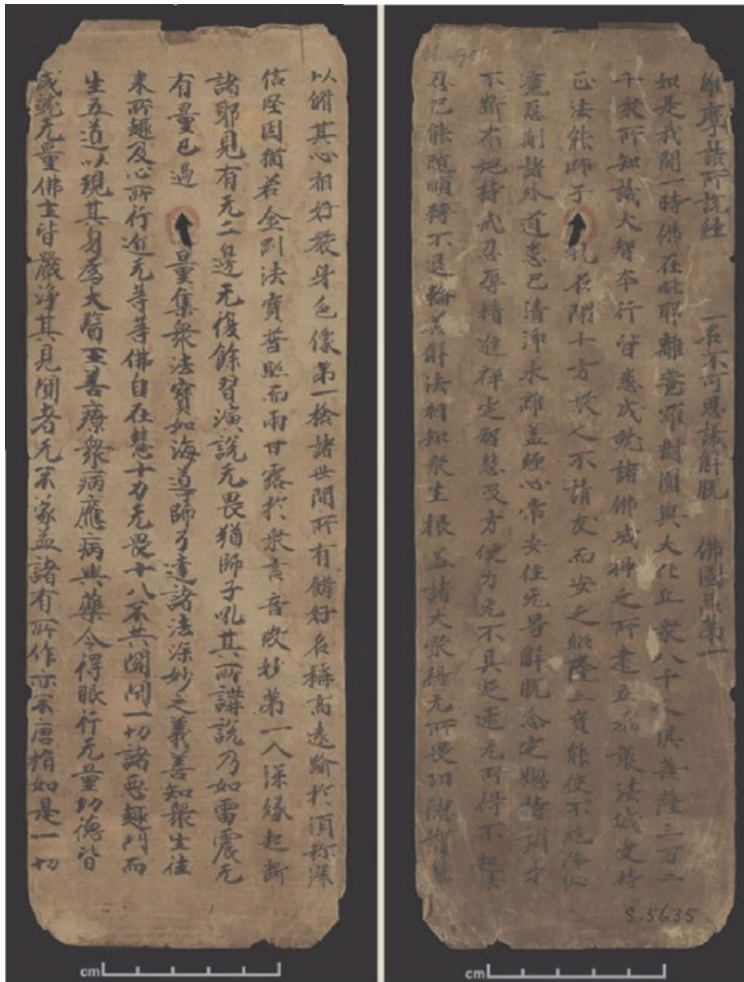 維摩詰所說經 一名不可思議解脫 佛國品第一
如是我聞一時佛在毗耶離菴羅樹園與大比丘衆八千人俱菩薩三万二
千衆所知識大智本行皆悉成就諸佛威神之所建立為護法城受持
正法能師子吼名聞十方衆人不請友而安之紹隆三寶能使不絕降伏
魔怨制諸外道悉已清淨永離盖纏心常安住无㝵解脫念定摠持辯才
不斷布施持戒忍辱精進禪定智慧及方便力无不具足逮无所得不起法
忍已能隨順轉不退輪善解法相知衆生根盖諸大衆得无所畏功德智慧
S.5635
以脩其心相好嚴身色像第一捨諸世間所有餝好名稱高遠踰於須弥深
信堅固猶若金剛法寶普照而雨甘露於衆言音微妙第一入深緣起斷
諸耶見有无二邊无復餘習演說无畏猶師子吼其所講說乃如雷震无
有量已過 量集衆法寶如海導師了達諸法深妙之義善知衆生往
來所趣及心所行近无等等佛自在慧十力无畏十八不共關閇一切諸惡趣門而
生五道以現其身為大醫王善療衆病應病與藥令得服行无量功德皆
成就无量佛土皆嚴淨其見聞者无不蒙益諸有所作亦不唐捐如是一切
cm
cm